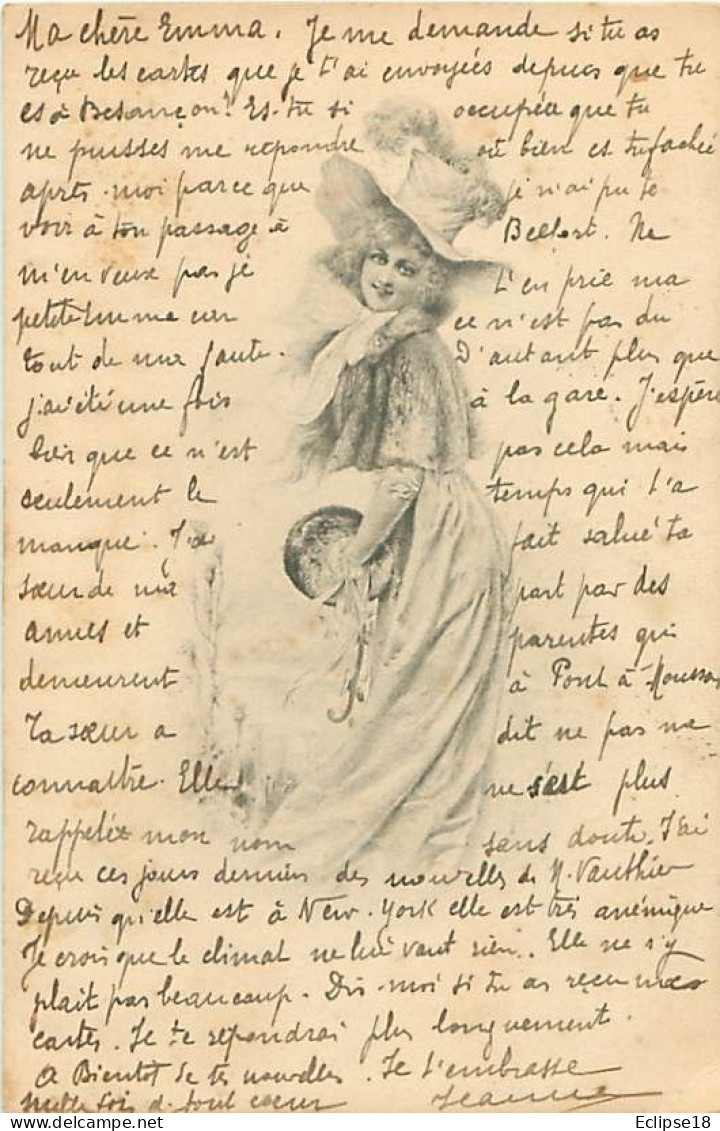 Ma chère Emma. Je me demande si tu as
reçu les cartes que je t'ai envoyées depuis que tu
es à Besançon? Es-tu si occupée que tu
ne puisses me repondre où bien es tu fachée
après-moi parce que je n'ai pu te
voir à ton passage à Belfort. Ne
m'en veux pas je t'en prie ma
petite Emma car ce n'est pas du
tout de ma faute. D'autant plus que
j'ai été une fois à la gare. J'espère
bien que ce n'est pas cela mais
seulement le temps qui t'a
manqué. J'ai fait salué ta
sœur de ma part par des
amies et parentes qui
demeurent à Pont à-Mousson
Ta sœur a dit ne pas me
connaitre. Elle ne s'est plus
rappelée mon nom sans doute. J'ai
reçu ces jours derniers des nouvelles de M. Vauthier
Depuis qu'elle est à New-York elle est très anémique
Je crois que le climat ne lui vaut rien. Elle ne s'y
plait pas beaucoup. Dis-moi si tu as reçu mes
cartes. Je te repondrai plus longuement.
A Bientôt de tes nouvelles. Je t'embrasse
mille fois de tout cœur Jeanne
Eclipse18